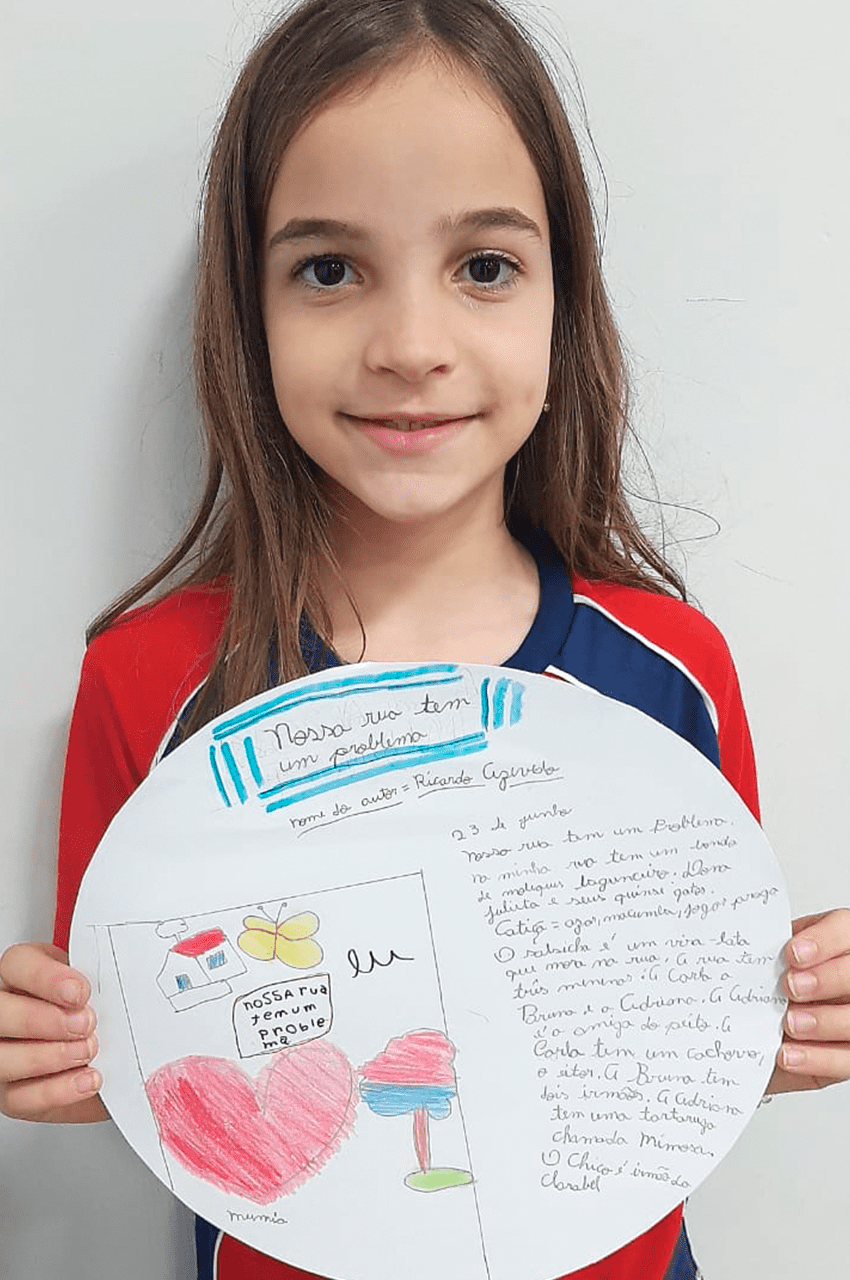 Nossa rua tem
um problema
nome do autor = Ricardo Azevedo
eu
NOSSA rua
tem um
proble
ma
mumia
23 de junho
Nossa rua tem um Problema.
na minha rua tem um bando
de moleques bagunceiro. Dona
Julieta e seus quinse gatos.
Catiça = azar, macumba, jogar praga
O salsicha é um vira-lata
que mora na rua. A rua tem
três meninas: A Carla a
Bruna e a Adriana. A Adriana
é a amiga do peito. A
Carla tem um cachorro,
o eitor. A Bruna tem
dois irmãos. A Adriana
tem uma tartaruga
chamada Mimosa.
O Chico é irmão da
Clarabel